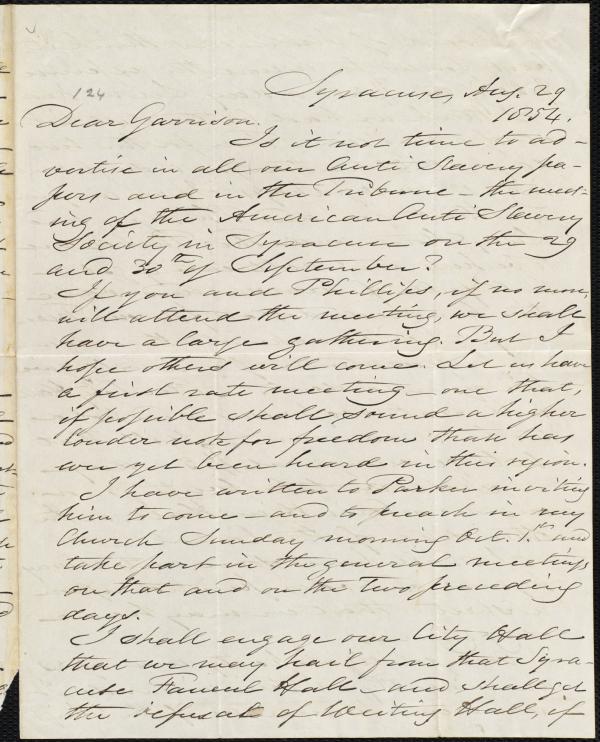 124
Syracuse, Aug. 29
1854.
Dear Garrison.
Is it not time to ad-
vertise in all our Anti Slavery pa-
pers - and in the Tribune - the meet-
ing of the American Anti Slavery
Society in Syracuse on the 29
and 30th of September?
If you and Phillips, if no more,
will attend the meeting, we shall
have a large gathering. But I
hope others will come. Let us have
a first rate meeting - one that,
if possible shall sound a higher
louder note for freedom than has
ever yet been heard in this region.
I have written to Parker inviting
him to come - and to preach in my
Church Sunday morning Oct. 1st and
take part in the general meetings
on that and on the two preceding
days.
I shall engage our City Hall
that we may hail from that Syra-
cuse Faneuil Hall - and shall get
the refusal of Wieting Hall, if